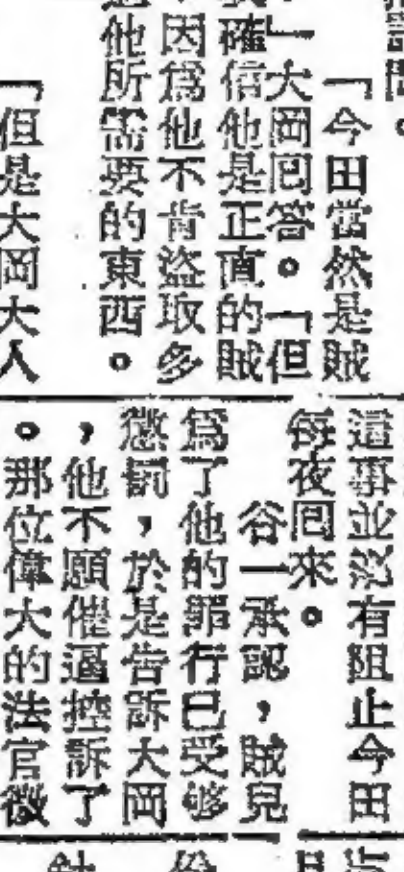 「今田當然是賊
」大岡囘答。「但
確信他是正直的賊
因爲他不肯盜取多
他所需要的東西。
「但是大岡大人
這事並沒有阻止今田
每夜囘來。
谷一承認，賊兒
爲了他的罪行已受够
懲罰，於是告訴大岡
，他不願催逼控訴了
。那位偉大的法官微